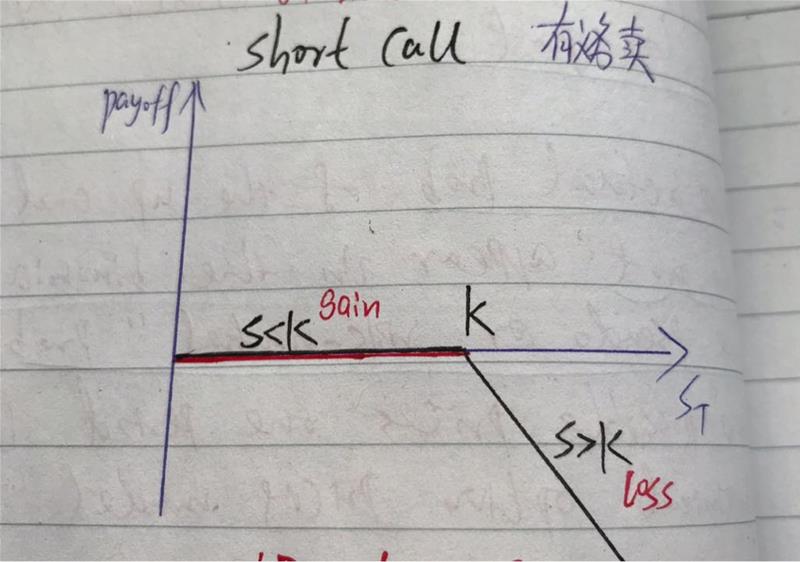 short call 有
payoff
S<K gain K
S_T
S>K
loss